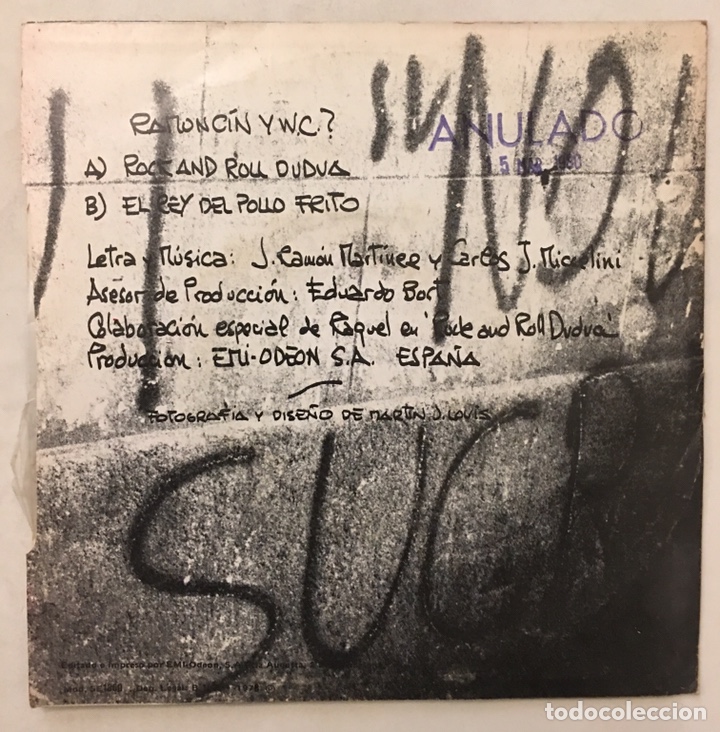 RAMONCÍN Y W.C.?
ANULADO
A) ROCK AND ROLL DUDUA
B) EL REY DEL POLLO FRITO
Letra y Música: J. Ramón Martínez y Carlos J. Michelini
Asesor de Producción: Eduardo Bort
Colaboración especial de Raquel en "Rock and Roll Dudua"
Producción: EMI-ODEON S.A. ESPAÑA
FOTOGRAFÍA Y DISEÑO DE MARTIN J. LOUIS
SUCI
Editado e impreso por EMI-Odeon, S.A.
Dep. Legal: B 1978
todocoleccion